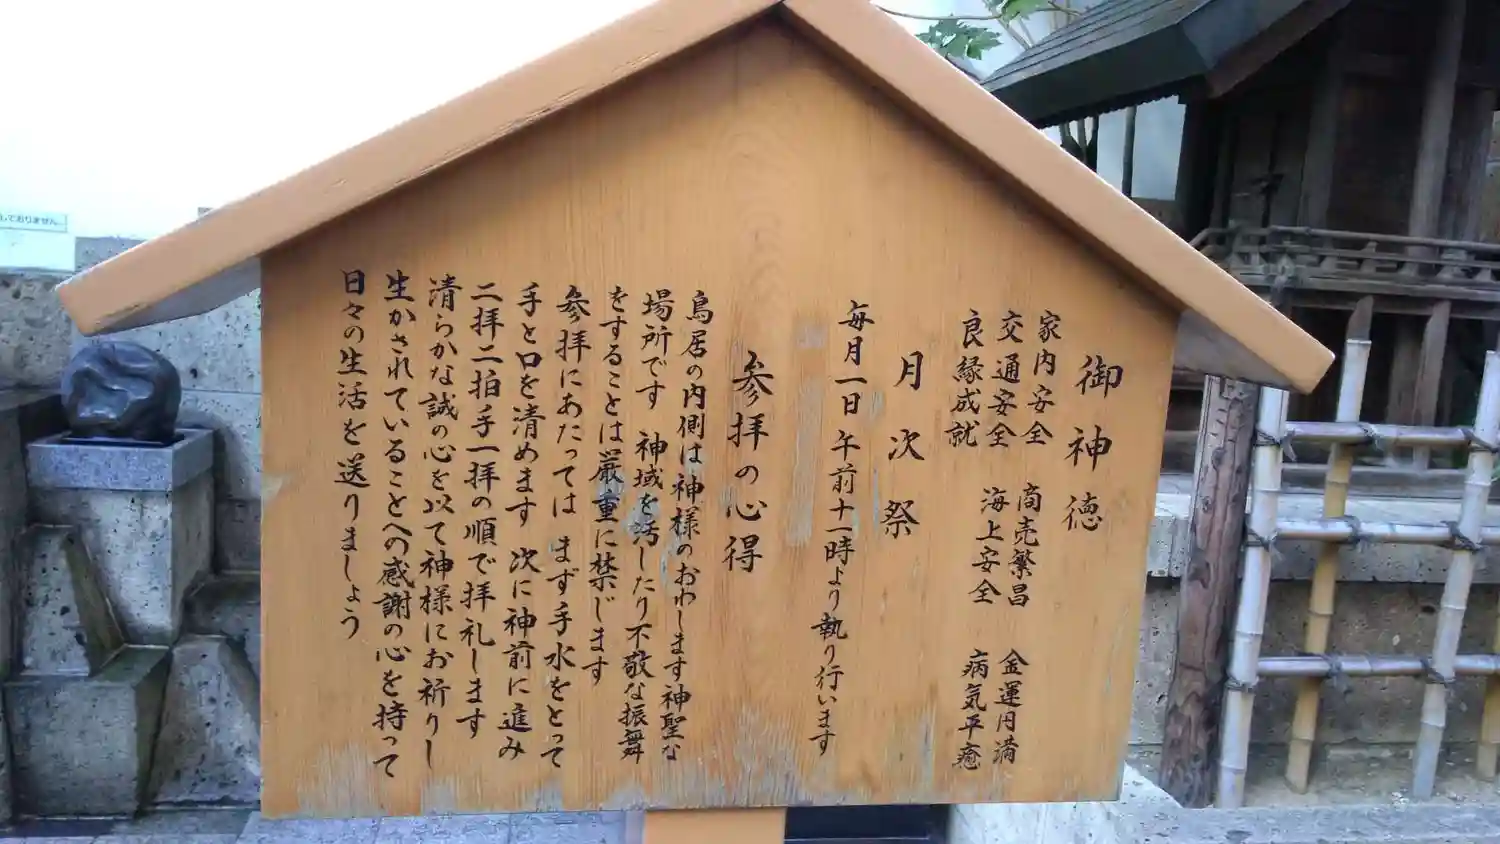 御神徳
家内安全 商売繁昌 金運円満
交通安全 海上安全 病気平癒
良縁成就
月次祭
毎月一日 午前十一時より執り行います
参拝の心得
鳥居の内側は神様のおわします神聖な
場所です 神域を活したり不敬な振舞
をすることは厳重に禁じます
参拝にあたっては まず手水をとって
手と口を清めます 次に神前に進み
二拝二拍手一拝の順で拝礼します
清らかな誠の心を以て神様にお祈りし
生かされていることへの感謝の心を持って
日々の生活を送りましょう
しておりません